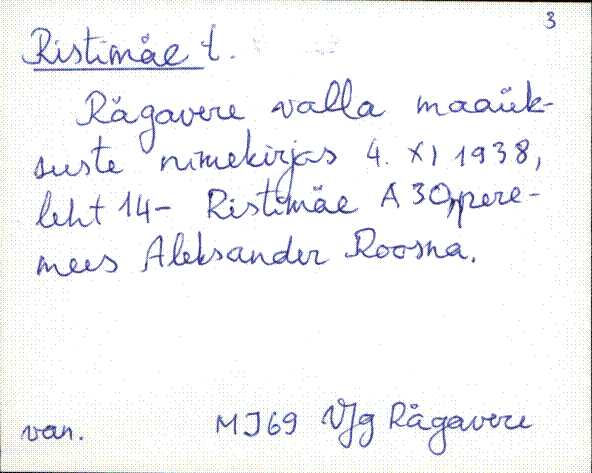 3
Ristimäe t.
Rägavere valla maaük-
suste nimekirjas 4. XI 1938,
leht 14 - Ristimäe A 30, pere-
mees Aleksander Roosna.
van. MJ69 VJg Rägavere